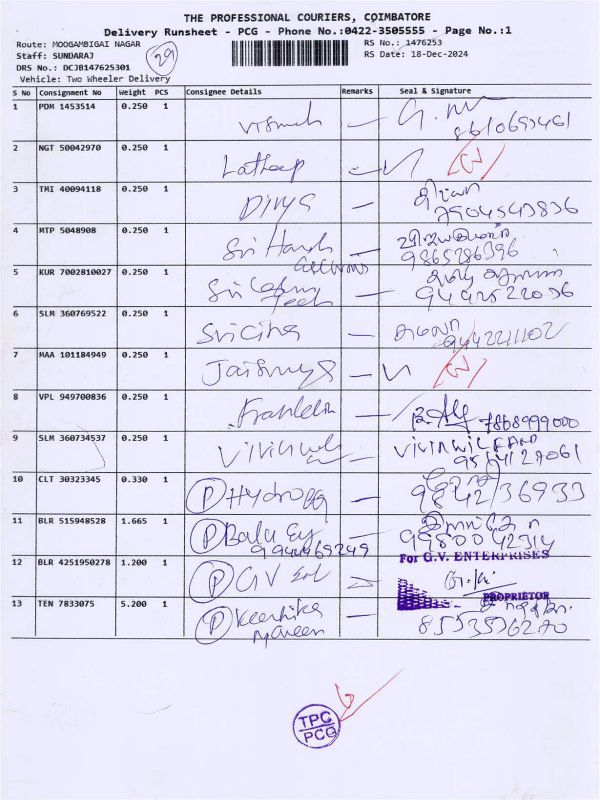 THE PROFESSIONAL COURIERS, COIMBATORE
Delivery Runsheet - PCG - Phone No.:0422-3505555 - Page No.:1
Route: MOOGAMBIGAI NAGAR
Staff: SUNDARAJ
DRS No.: DCJB147625301
Vehicle: Two Wheeler Delivery
29
RS No.: 1476253
RS Date: 18-Dec-2024
S No Consignment No Weight PCS Consignee Details Remarks Seal & Signature
1 PDM 1453514 0.250 1
2 NGT 50042970 0.250 1
3 TMI 40094118 0.250 1 Divya
7904543836
4 MTP 5048908 0.250 1 Sri Harsh
9865286396
5 KUR 7002810027 0.250 1
Tech
6 SLM 360769522 0.250 1
9442211102
7 MAA 101184949 0.250 1
8 VPL 949700836 0.250 1 Franklin
7868999000
9 SLM 360734537 0.250 1
10 CLT 30323345 0.330 1 P Hydro
9842136933
11 BLR 515948528 1.665 1 P Balu
9944469249
9980042314
12 BLR 4251950278 1.200 1 P GV Ent
For G.V. ENTERPRISES
PROPRIETOR
13 TEN 7833075 5.200 1 P Keerthika
Naveen
TPC
PCG